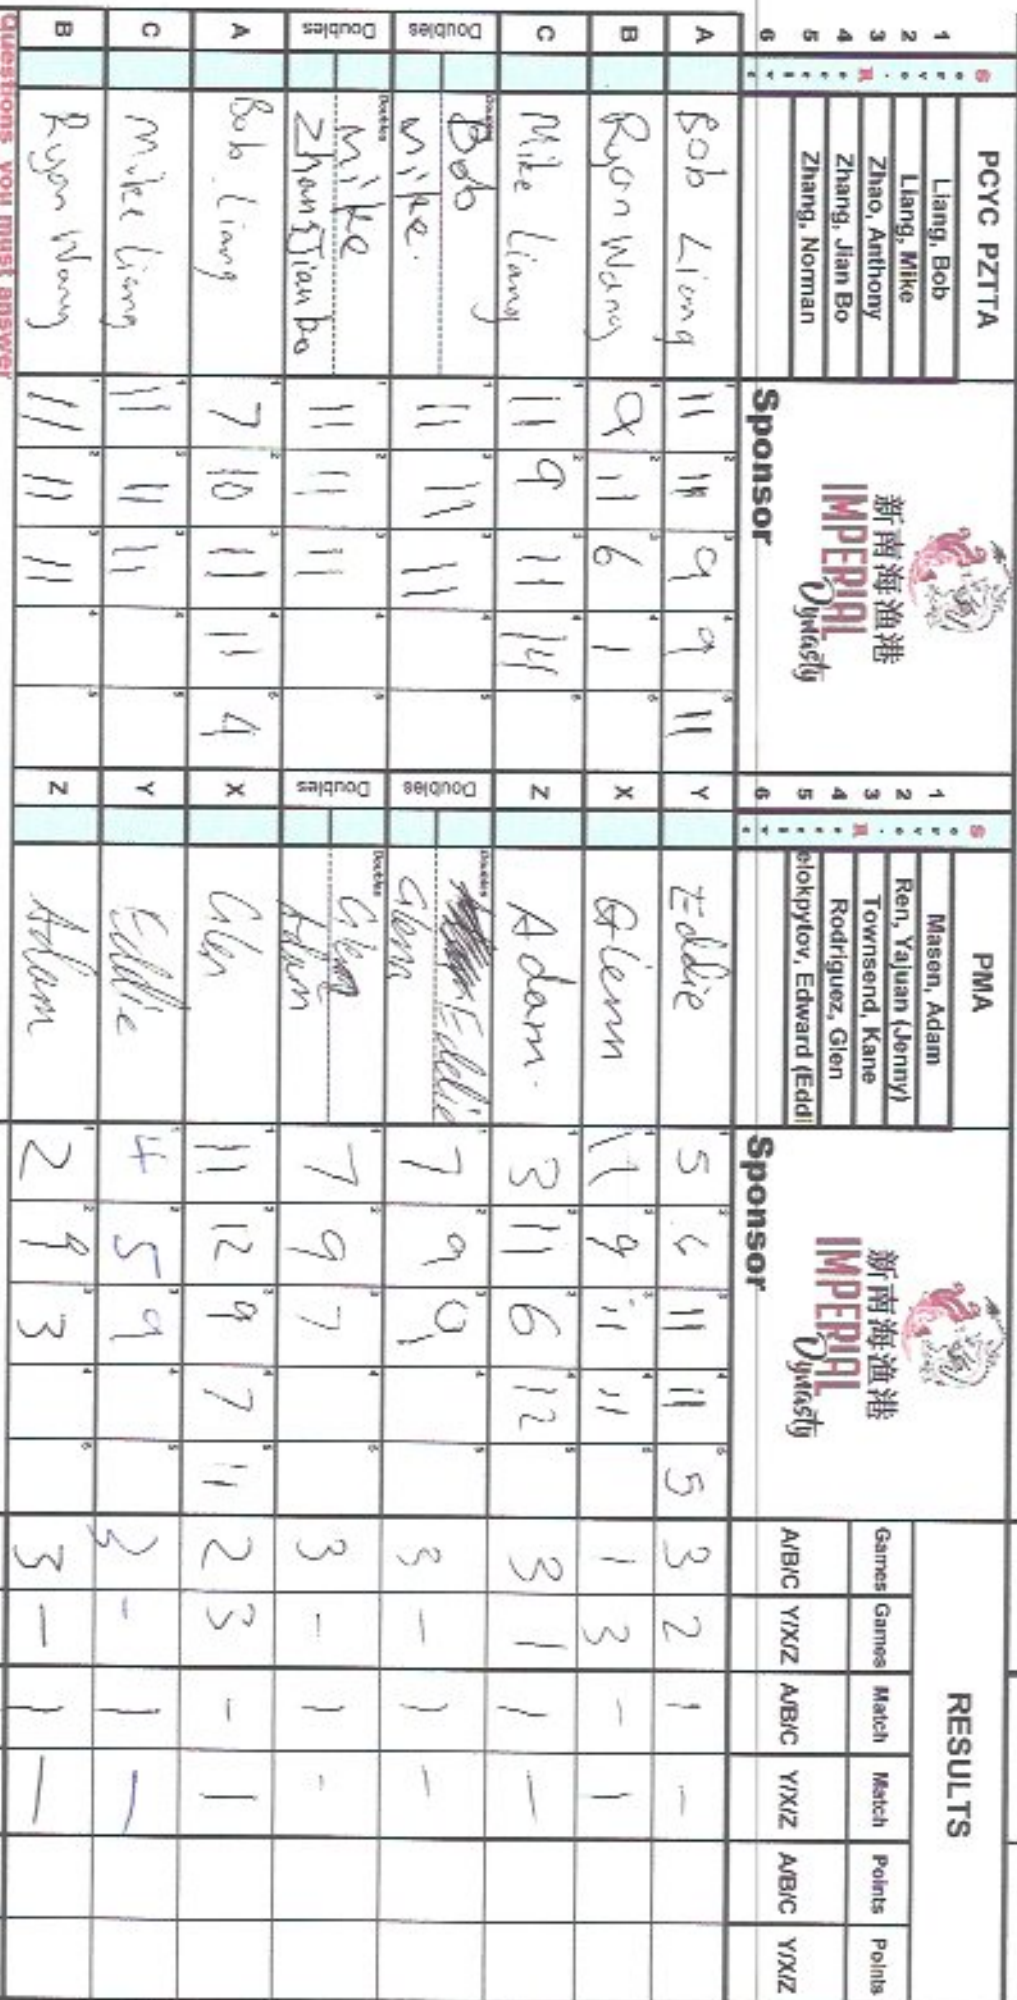 PCYC PZTTA
1 Liang, Bob
2 Liang, Mike
3 Zhao, Anthony
4 Zhang, Jian Bo
5 Zhang, Norman
6
S
R
新南海渔港
IMPERIAL
Dynasty
Sponsor
PMA
1 Masen, Adam
2 Ren, Yajuan (Jenny)
3 Townsend, Kane
4 Rodriguez, Glen
5 elokpytov, Edward (Eddi
6
S
R
新南海渔港
IMPERIAL
Dynasty
Sponsor
RESULTS
Games Games Match Match Points Points
A/B/C Y/X/Z A/B/C Y/X/Z A/B/C Y/X/Z
A Bob Liang 11 11 9 9 11 Y Eddie 5 6 11 11 5 3 2 1 -
B Ryan Wang 9 11 6 1 X Glenn 11 9 11 11 1 3 - 1
C Mike Liang 11 9 11 14 Z Adam. 3 11 6 12 3 1 1 -
Doubles Bob Doubles Eddie
Mike. 11 11 11 Glenn 7 9 9 3 - 1 -
Doubles Mike Doubles Glen
Zhang Jianbo 11 11 11 Adam 7 9 7 3 - 1 -
A Bob Liang 7 10 11 11 4 X Glen 11 12 9 7 11 2 3 - 1
C Mike Liang 11 11 11 Y Eddie 4 5 9 3 - 1 -
B Ryan Wang 11 11 11 Z Adam 2 9 3 3 - 1 -
Questions you must answer